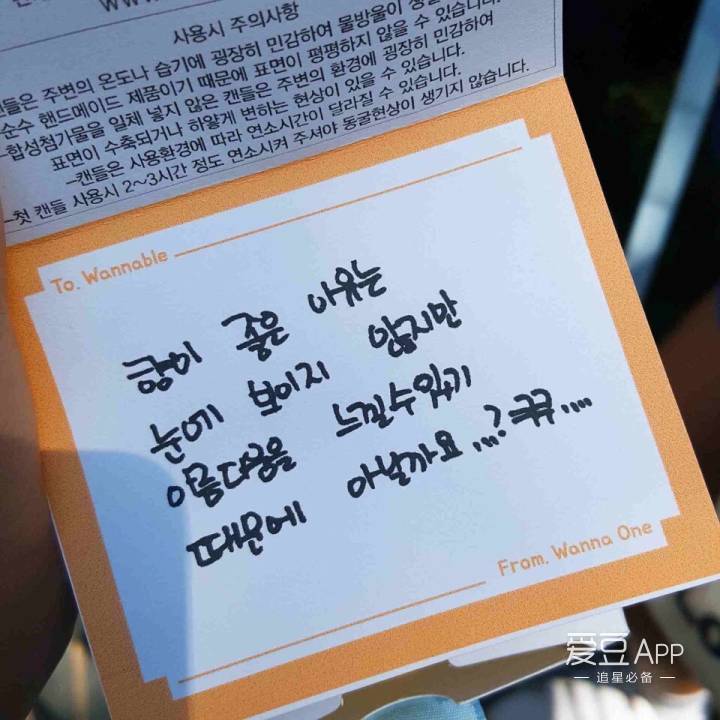 사용시 주의사항
캔들은 주변의 온도나 습기에 굉장히 민감하여 물방울이
순수 핸드메이드 제품이기 때문에 표면이 평평하지 않을 수 있습니다.
-합성첨가물을 일체 넣지 않은 캔들은 주변의 환경에 굉장히 민감하여
표면이 수축되거나 하얗게 변하는 현상이 있을 수 있습니다.
-캔들은 사용환경에 따라 연소시간이 달라질 수 있습니다.
-첫 캔들 사용시 2~3시간 정도 연소시켜 주셔야 동굴현상이 생기지 않습니다.
To. Wannable
향이 좋은 이유는
눈에 보이지 않지만
아름다움을 느낄수있기
때문에 아닐까요...? ㅋㅋ....
From. Wanna One
爱豆APP
追星必备